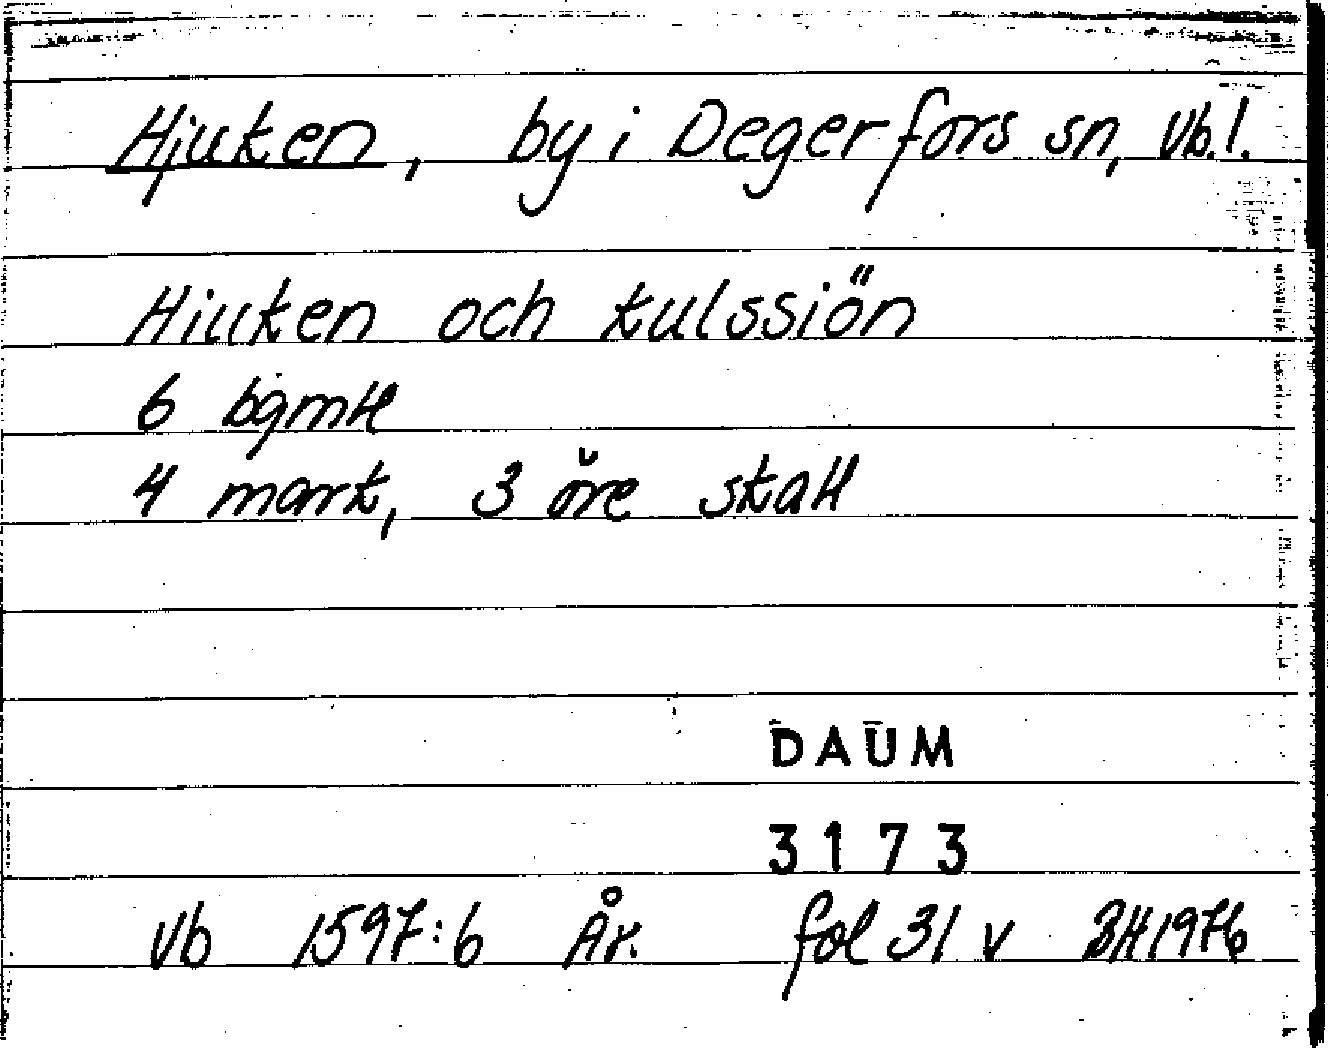 Hjuken, by i Degerfors sn, Vb.l.
Hiuken och kulssiön
6 bgmH
4 mark, 3 öre skatt
DAUM
3173
Vb 1597:6 År. fol 31 v BH1976